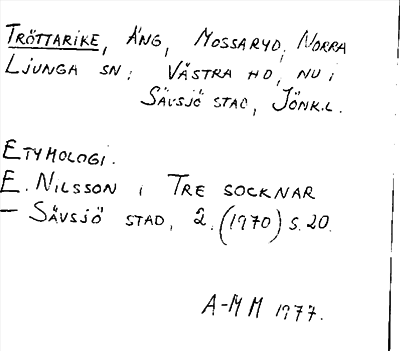 Tröttarike, Äng, Mossaryd, Norra
Ljunga sn, Västra hd, nu i
Sävsjö stad, Jönk.l.
Etymologi.
E. Nilsson i Tre socknar
– Sävsjö stad, 2. (1970) s. 20.
A-M M 1977.